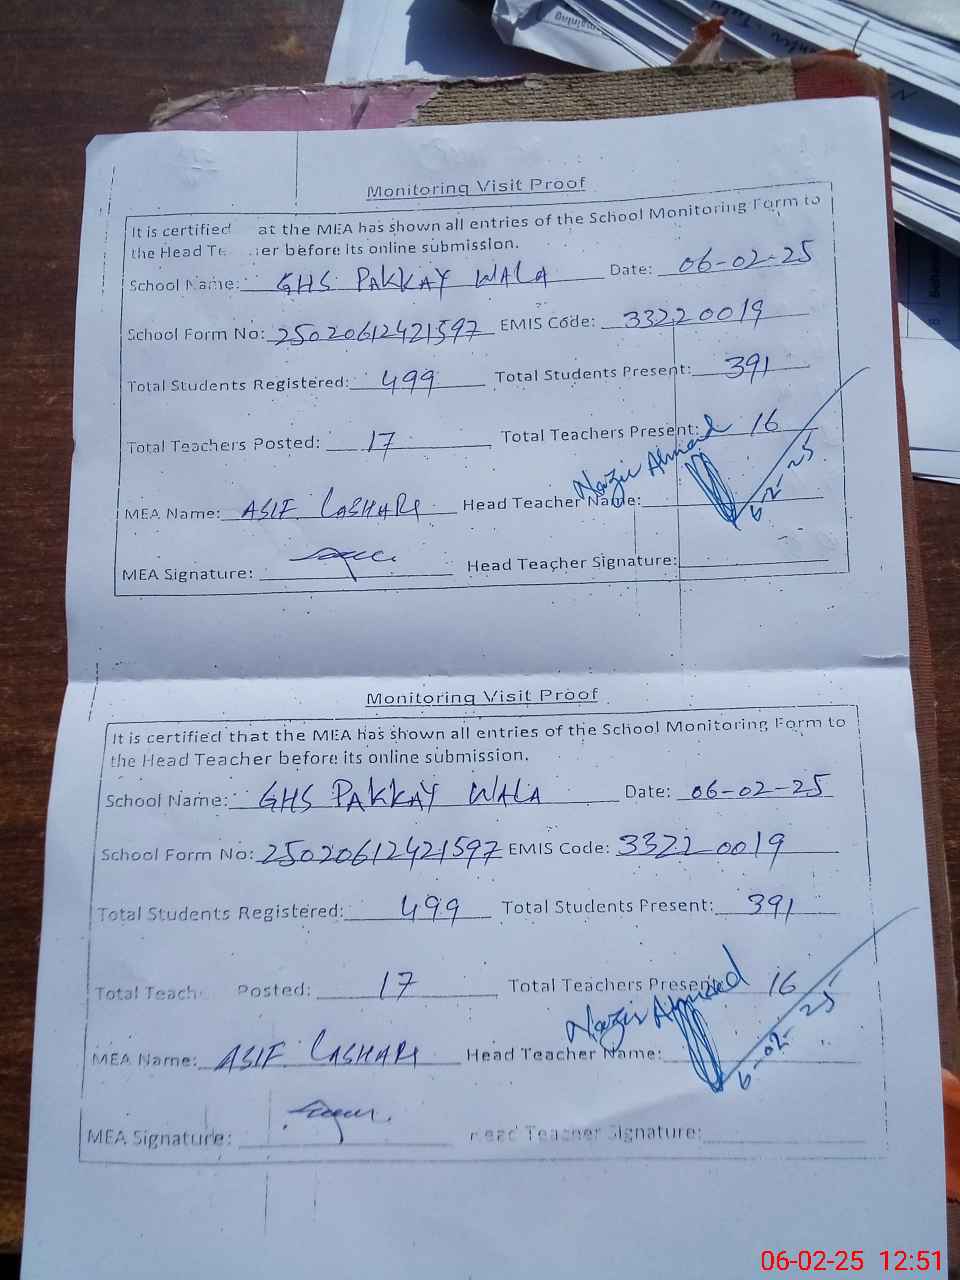 Monitoring Visit Proof
It is certified at the MEA has shown all entries of the School Monitoring Form to
the Head Te er before its online submission.
School Name: GHS PAKKAY WALA Date: 06-02-25
School Form No: 25020612421597 EMIS Code: 33220019
Total Students Registered: 499 Total Students Present: 391
Total Teachers Posted: 17 Total Teachers Present: 16
Nazir Ahmad
6-02-25
MEA Name: ASIF LASHARI Head Teacher Name:
MEA Signature: Head Teacher Signature:
Monitoring Visit Proof
It is certified that the MEA has shown all entries of the School Monitoring Form to
the Head Teacher before its online submission.
School Name: GHS PAKKAY WALA Date: 06-02-25
School Form No: 25020612421597 EMIS Code: 33220019
Total Students Registered: 499 Total Students Present: 391
Total Teache Posted: 17 Total Teachers Present: 16
Nazir Ahmad
6-02-25
MEA Name: ASIF LASHARI Head Teacher Name:
MEA Signature: Head Teacher Signature:
06-02-25 12:51